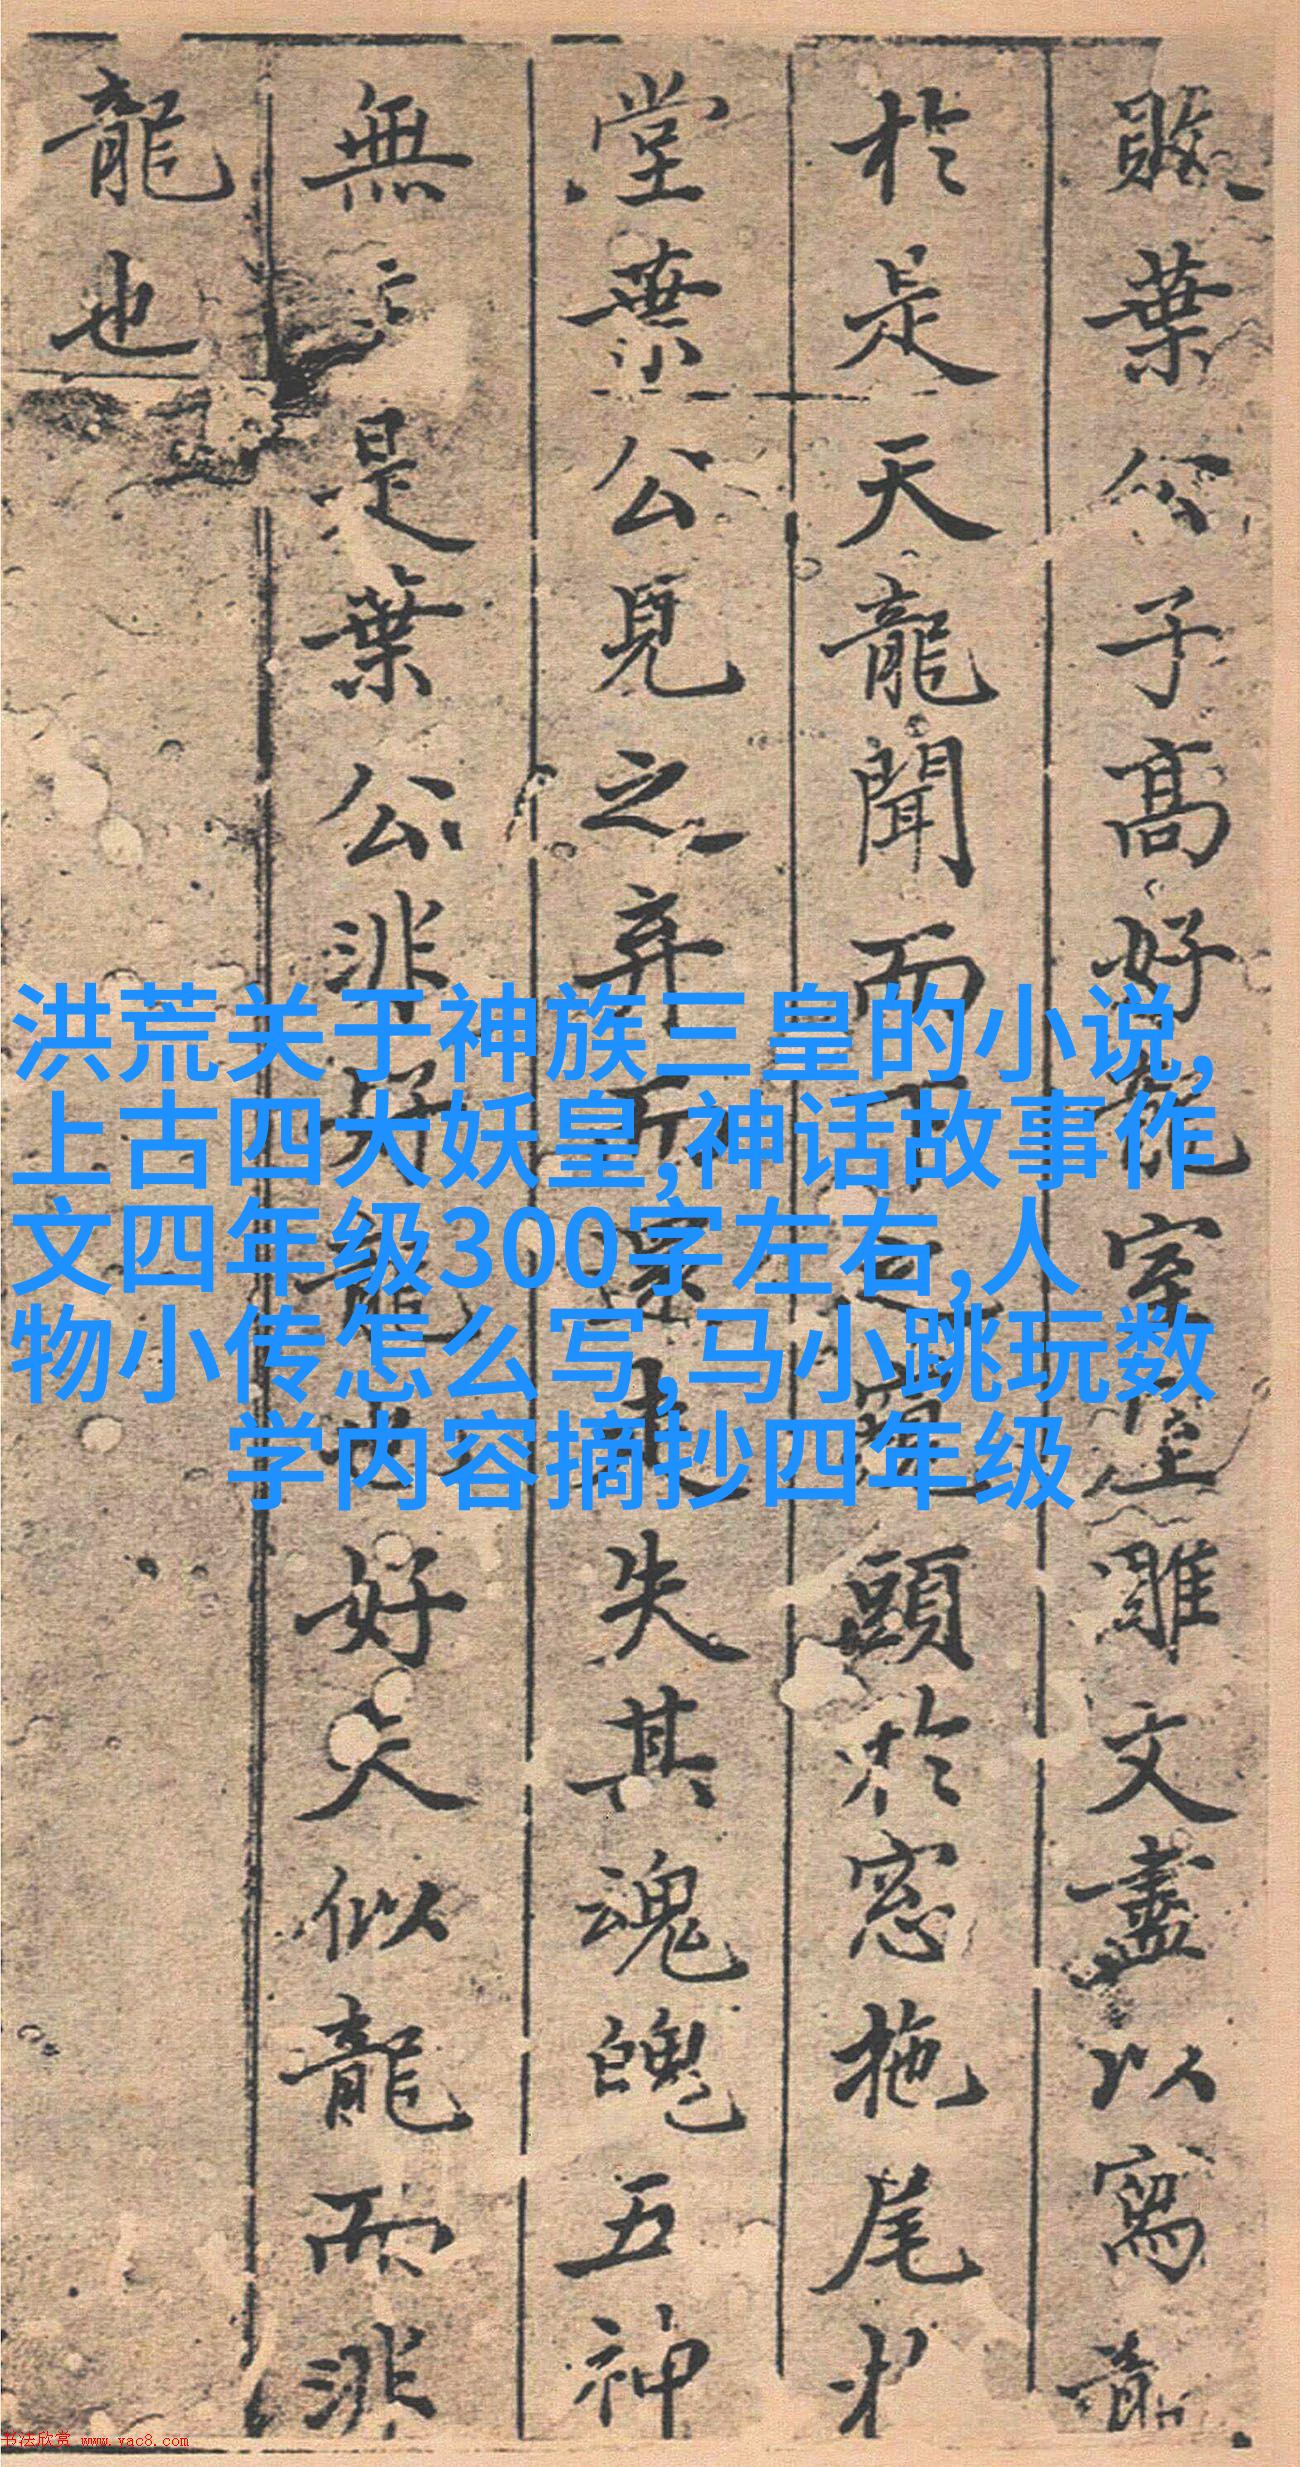 敗葉公子高好龍室雕文盡以寫龍
於是天龍聞而下之窺頭於窓拖尾
堂葉公見之弃而還走失其魂魄五神
無是葉公非好龍也好夫似龍而非
龍也
洪荒关于神族三皇的小说,
上古四大妖皇,神话故事作
文四年级300字左右,人
物小传怎么写,马小跳玩数
学内容摘抄四年级
书法欣赏 www.yac8.com